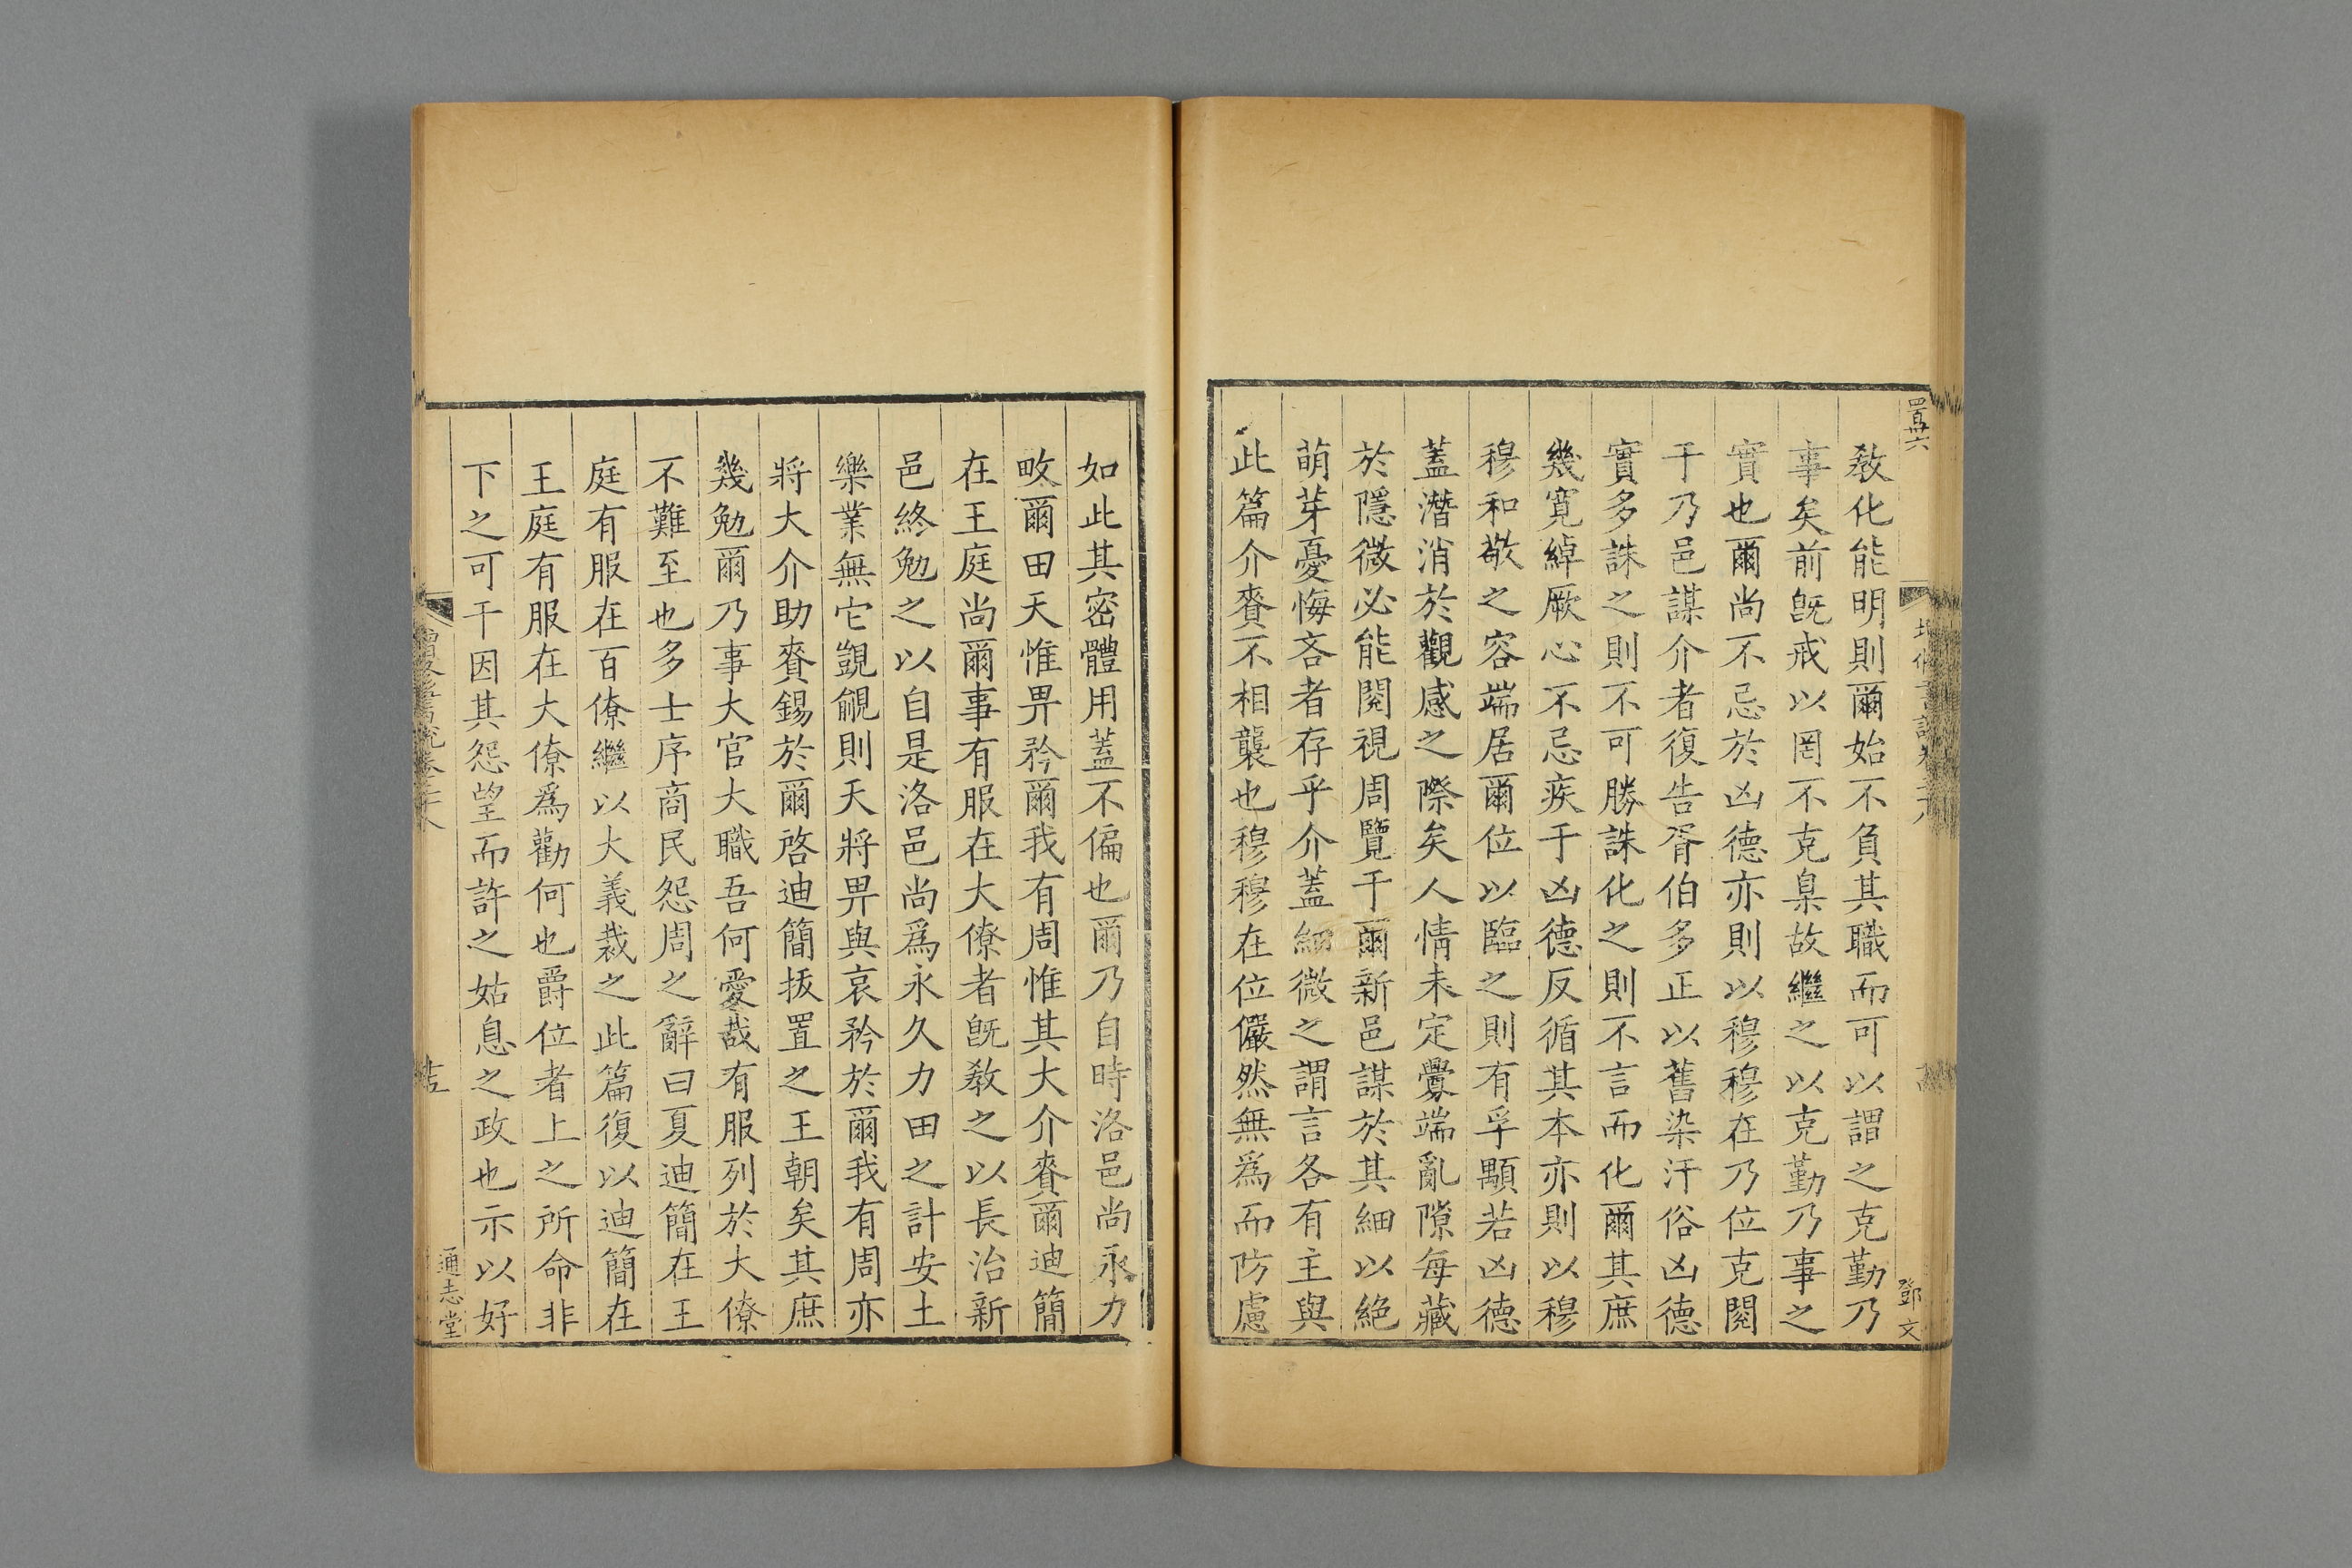 敎化能明則爾始不負其職而可以謂之克勤乃
事矣前旣戒以罔不克臬故繼之以克勤乃事之
實也爾尚不忌於凶德亦則以穆穆在乃位克閱
于乃邑謀介者復告胥伯多正以舊染汙俗凶德
實多誅之則不可勝誅化之則不言而化爾其庶
幾寬綽厥心不忌疾于凶德反循其本亦則以穆
穆和敬之容端居爾位以臨之則有孚顒若凶德
蓋潛消於觀感之際矣人情未定釁端亂隙每藏
於隱微必能閱視周覽于爾新邑謀於其細以絕
萌芽憂悔吝者存乎介蓋細微之謂言各有主與
此篇介賚不相襲也穆穆在位儼然無爲而防慮
如此其密體用蓋不偏也爾乃自時洛邑尚永力
畋爾田天惟畀矜爾我有周惟其大介賚爾迪簡
在王庭尚爾事有服在大僚者旣敎之以長治新
邑終勉之以自是洛邑尚爲永久力田之計安土
樂業無它覬覦則天將畀與哀矜於爾我有周亦
將大介助賚錫於爾啓迪簡拔置之王朝矣其庶
幾勉爾乃事大官大職吾何愛哉有服列於大僚
不難至也多士序商民怨周之辭曰夏迪簡在王
庭有服在百僚繼以大義裁之此篇復以迪簡在
王庭有服在大僚爲勸何也爵位者上之所命非
下之可干因其怨望而許之姑息之政也示以好
通志堂
鄧文